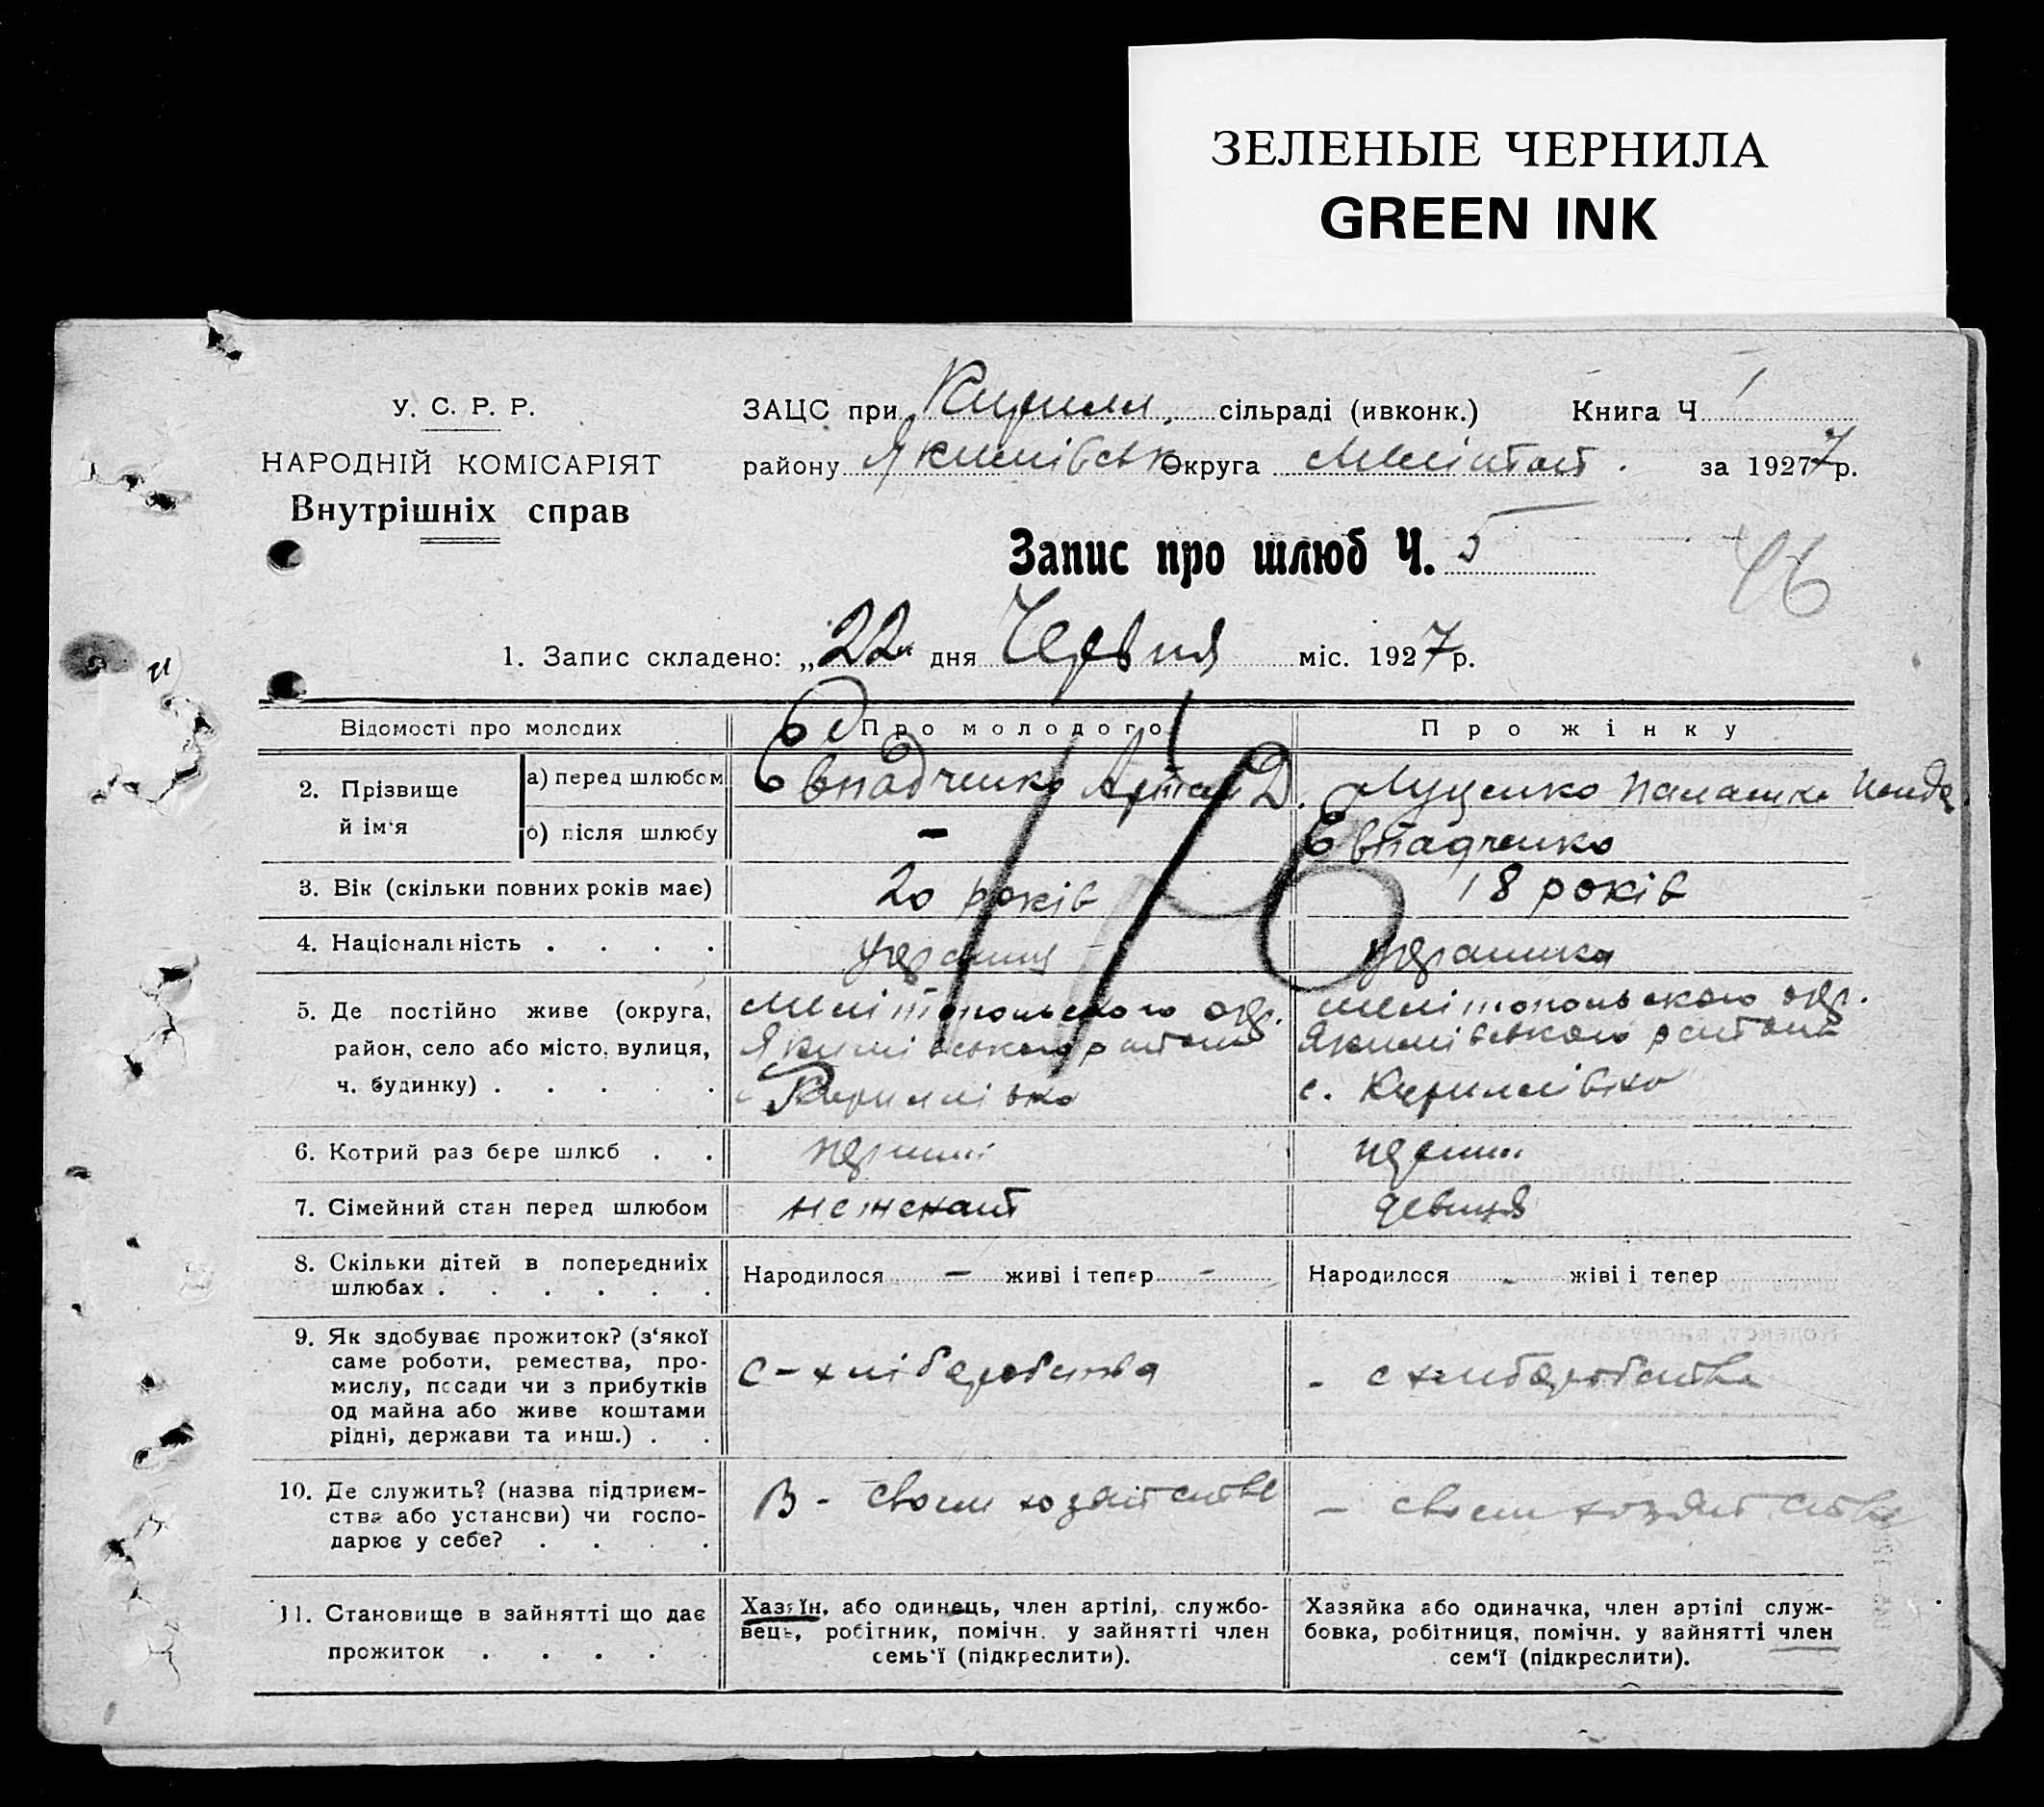 ЗЕЛЕНЫЕ ЧЕРНИЛА
GREEN INK
У. С. Р. Р.
НАРОДНІЙ КОМІСАРІЯТ
Внутрішніх справ
ЗАЦС при Кирилл. сільраді (ивконк.) Книга Ч 1
району Якимівськ Округа Меліт за 1927 7 р.
Запис про шлюб Ч. 5
46
1. Запис складено: „22“ дня Червня міс. 1927 р.
Відомості про молодих
Про молодого
Про жінку
2. Прізвище й ім‘я
а) перед шлюбом
Євпадченко Артем Д.
Луценко Палашка
б) після шлюбу
–
Євпадченко
176
3. Вік (скільки повних років має)
20 років
18 років
4. Національність . . . .
українц
українка
5. Де постійно живе (округа,
район, село або місто, вулиця,
ч. будинку) . . . . .
Мелітопольского окр.
Якимівського району
с. Кирилівка
Мелітопольского окр.
Якимівського району
с. Кирилівка
6. Котрий раз бере шлюб . .
перший
перший
7. Сімейний стан перед шлюбом
нежонат
девиця
8. Скільки дітей в попередниіх
шлюбах . . . . . .
Народилося – живі і тепер –
Народилося - жіві і тепер
9. Як здобуває прожиток? (з‘якої
саме роботи, ремества, про-
мислу, посади чи з прибутків
од майна або живе коштами
рідні, держави та инш.) . .
с - хліборобства
- с хліборобства
10. Де служить? (назва підприєм-
ства або установи) чи госпо-
дарює у себе? . . . .
В - своем хозяйстве
- своем хозяйстве
11. Становище в зайнятті що дає
прожиток . . . . .
Хазяїн, або одинець, член артілі, службо-
вець, робітник, помічн. у зайнятті член
семь‘ї (підкреслити).
Хазяйка або одиначка, член артілі служ-
бовка, робітниця, помічн. у зайнятті член
сем‘ї (підкреслити).